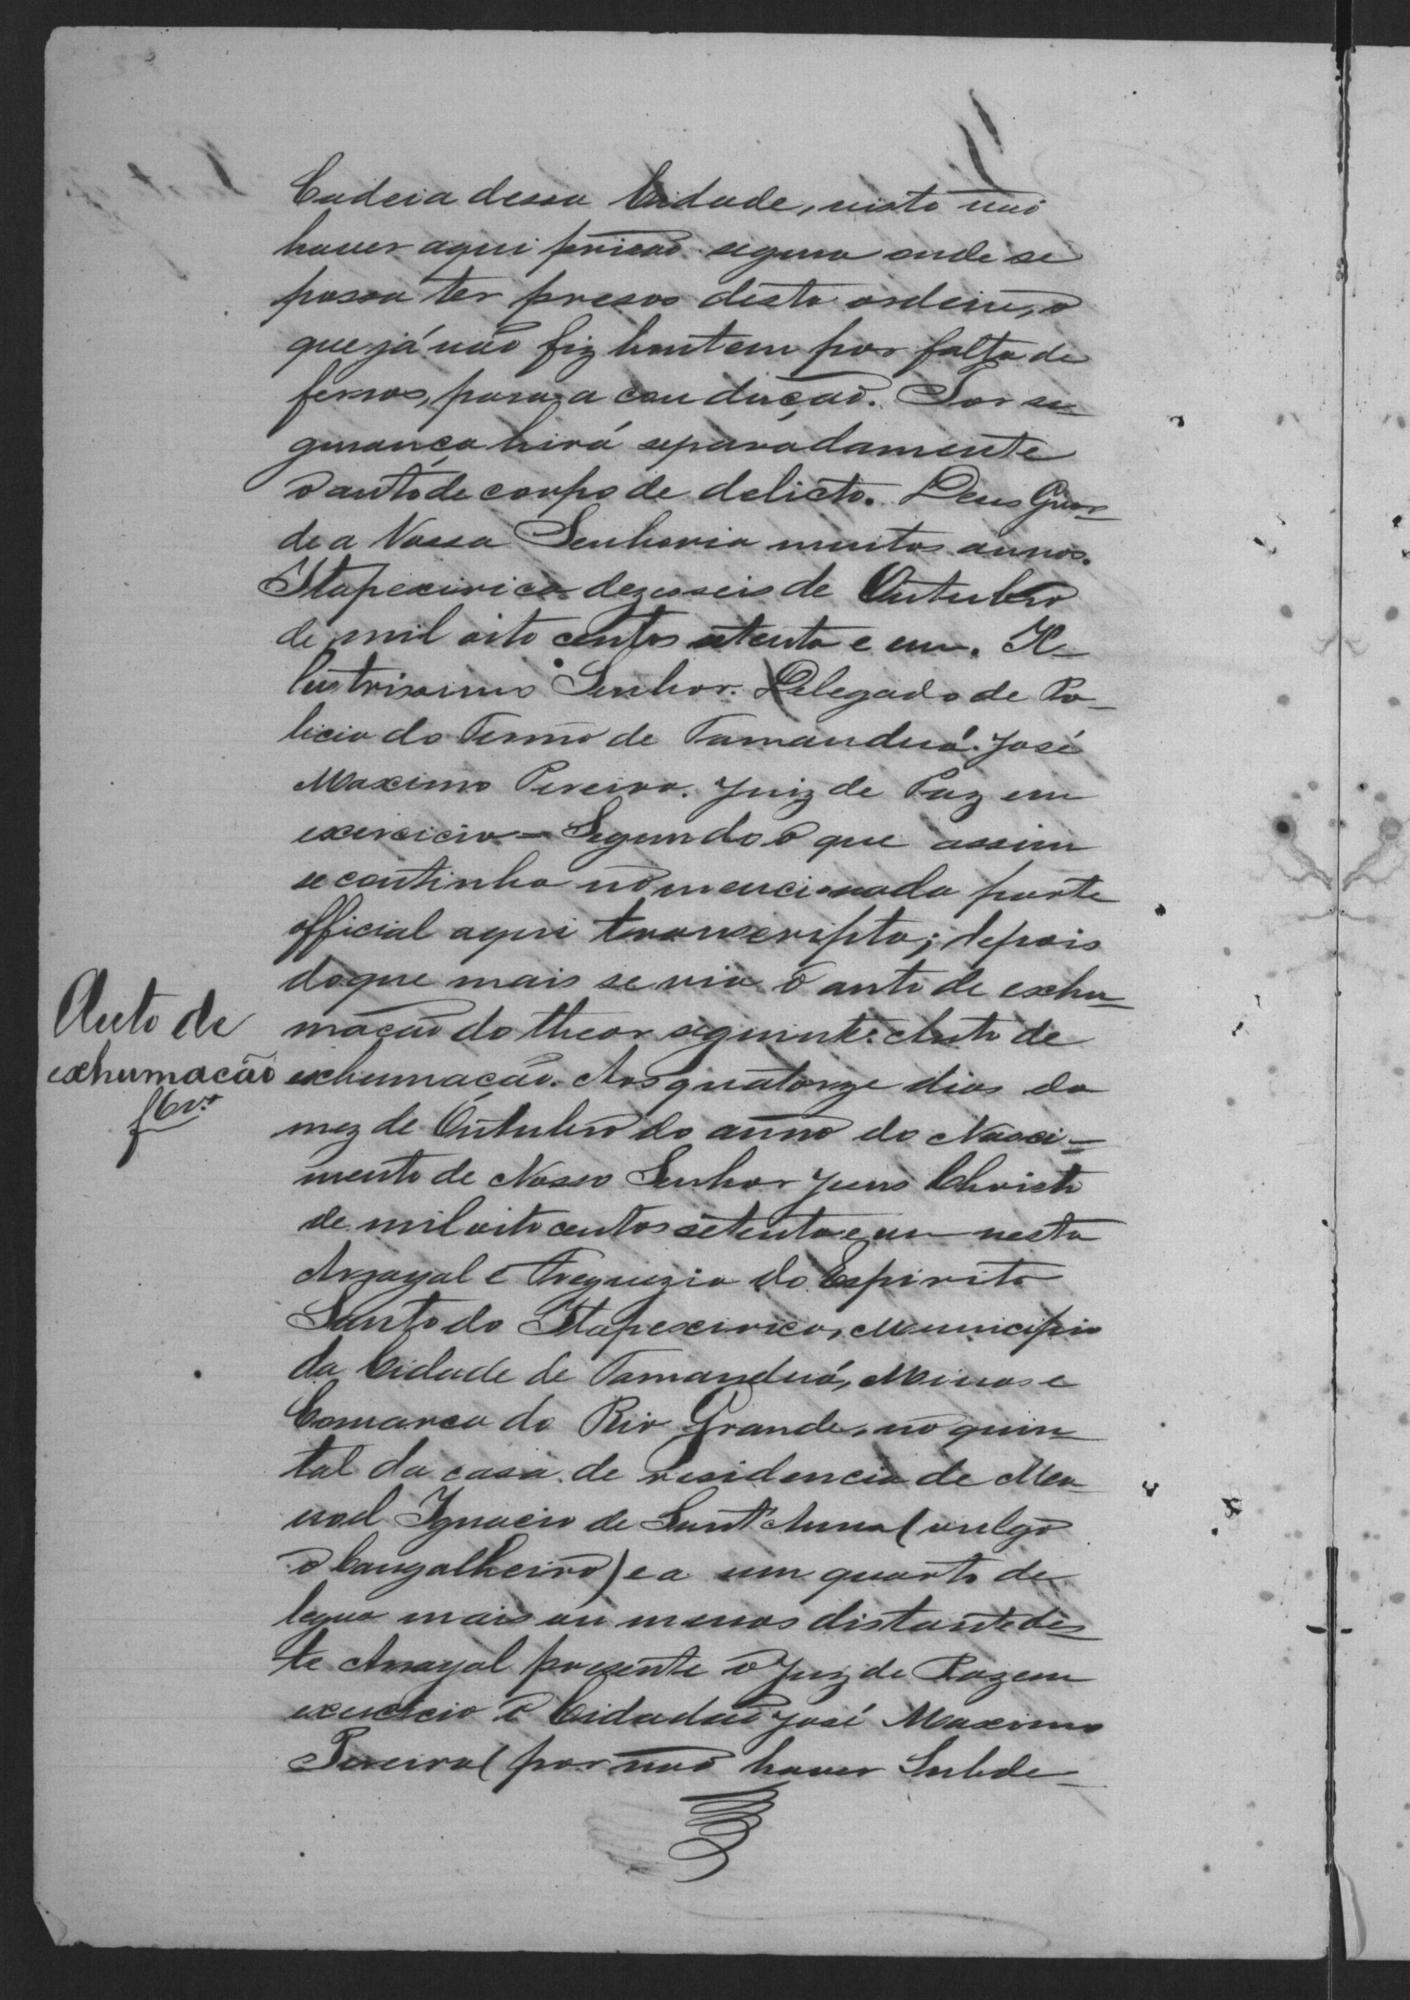 Cadeia dessa Cidade, visto não
haver aqui prizão segura onde se
possa ter presos desta ordem, o
que já não fiz hontem por falta de
ferros, para a conducção. Por se-
gurança hirá separadamente
o auto de corpo de delicto. Deus Guar-
de a Vossa Senhoria muitos annos.
Itapexirica dezesseis de Outubro
de mil oito centos setenta e um. Il-
lustrissimo Senhor. Delegado de Po-
licia do Termo de Tamanduá. José
Maximo Pereira. Juiz de Paz em
exercicio = Segundo o que assim
se continha no mencionada parte
official aqui transcripta; depois
do que mais se via o auto de exhu-
mação do theor seguinte. Auto de
exhumação. Aos quatorze dias do
mez de Outubro do anno do Nasci-
mento de Nosso Senhor Jesus Christo
de mil oito centos setenta e um nesta
Arrayal e Freguezia do Espirito
Santo do Itapexirica, Municipio
da Cidade de Tamanduá, Minas e
Comarca do Rio Grande, no quin-
tal da casa de residencia de Ma-
noel Ignacio de Sant'Anna (vulgo
o Cangalheiro) e a um quarto de
legua mais ou menos distante des-
te Arrayal presente o Juiz de Paz em
exercicio o Cidadão José Maximo
Pereira (por não haver Subde-
Auto de
exhumação
f 6 v.º